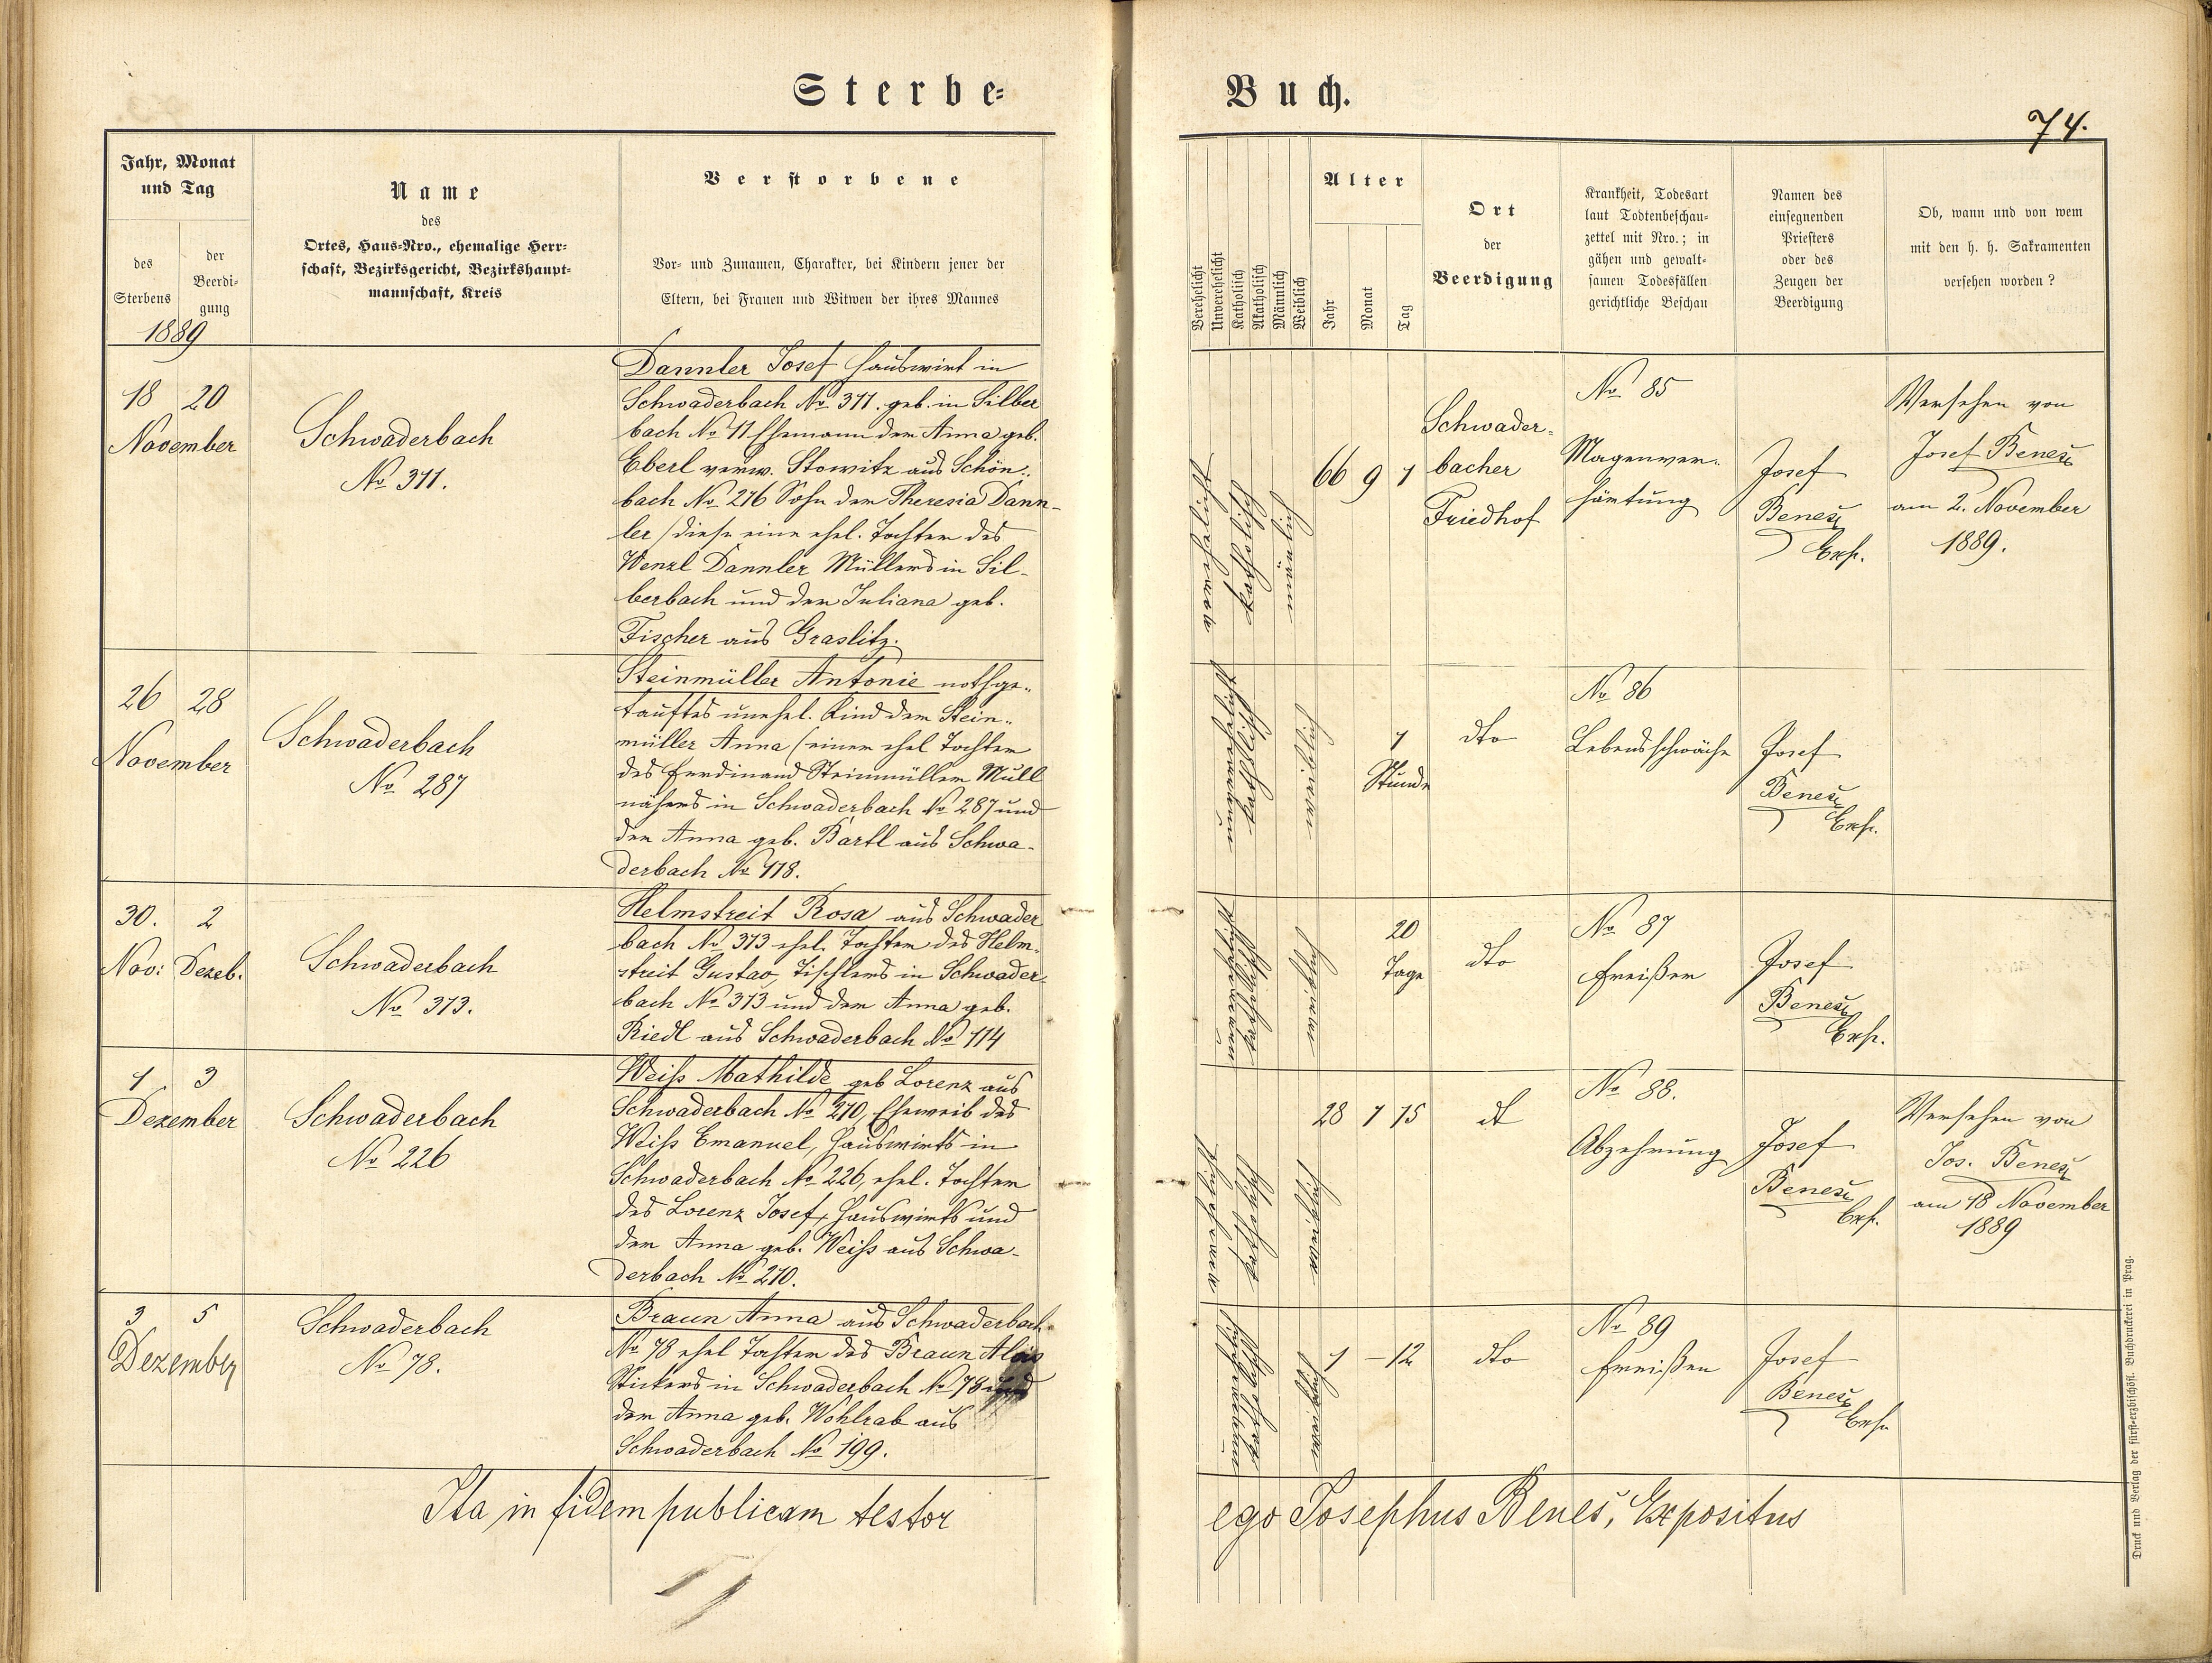 Sterbe=
Buch.
74.
Jahr, Monat
und Tag
des
Sterbens
der
Beerdi-
gung
1889
Name
des
Ortes, Haus-Nro., ehemalige Herr-
schaft, Bezirksgericht, Bezirkshaupt-
mannschaft, Kreis
Verstorbene
Vor- und Zunamen, Charakter, bei Kindern jener der
Eltern, bei Frauen und Witwen der ihres Mannes
Verehelicht
Unverehelicht
Katholisch
Akatholisch
Männlich
Weiblich
Alter
Jahr
Monat
Tag
Ort
der
Beerdigung
Krankheit, Todesart
laut Todtenbeschau-
zettel mit Nro.; in
gähen und gewalt-
samen Todesfällen
gerichtliche Beschau
Namen des
einsegnenden
Priesters
oder des
Zeugen der
Beerdigung
Ob, wann und von wem
mit den h. h. Sakramenten
versehen worden?
18 20
November
Schwaderbach
No 311.
Dannler Josef Hauswirt in
Schwaderbach No 311. geb. in Silber
bach No 11 Ehemann der Anna geb.
Eberl verw. Stowitz aus Schön-
bach No 216 Sohn der Theresia Dann-
ler / diese eine ehel. Tochter des
Wenzl Dannler Müllers in Sil-
berbach und der Juliana geb.
Fischer aus Graslitz.
verehelicht
katholisch
männlich
66 9 1
Schwader-
bacher
Friedhof
No 85
Magenver-
härtung
Josef
Beneš
Exp.
Versehen von
Josef Beneš
am 2. November
1889.
26 28
November
Schwaderbach
No 287
Steinmüller Antonie nothge-
tauftes unehel. Kind der Stein-
müller Anna (einer ehel Tochter
des Ferdinand Steinmüller Mull
nähers in Schwaderbach No 287 und
der Anna geb. Bartl aus Schwa-
derbach No 118.
unverehelicht
katholisch
weiblich
1
Stunde
dto
No 86
Lebensschwäche
Josef
Beneš
Exp.
30. 2
Nov: Dezeb.
Schwaderbach
No 313.
Helmstreit Rosa aus Schwader
bach No 313 ehel. Tochter des Helm-
streit Gustav, Tischlers in Schwader-
bach No 313 und der Anna geb.
Riedl aus Schwaderbach No 114
unverehelicht
katholisch
weiblich
20
Tage
dto
No 87
Freißen
Josef
Beneš
Exp.
1 3
Dezember
Schwaderbach
No 226
Weiss Mathilde geb Lorenz aus
Schwaderbach No 210, Eheweib des
Weiss Emanuel, Hauswirts in
Schwaderbach No 226, ehel. Tochter
des Lorenz Josef, Hauswirts und
der Anna geb. Weiss aus Schwa-
derbach No 210.
verehelicht
katholisch
weiblich
28 1 15
dt
No 88.
Abzehrung
Josef
Beneš
Exp.
Versehen von
Jos. Beneš
am 18 November
1889
3 5
Dezember
Schwaderbach
No 78.
Braun Anna aus Schwaderbach
No 78 ehel Tochter des Braun Alois
Stickers in Schwaderbach No 78 und
der Anna geb. Wohlrab aus
Schwaderbach No 199.
unverehelicht
katholisch
weiblich
1 – 12
dto
No 89
Freißen
Josef
Beneš
Exp.
Ita in fidem publicam testor
ego Josephus Beneš, Expositus
Druck und Verlag der fürst-erzbischöfl. Buchdruckerei in Prag.